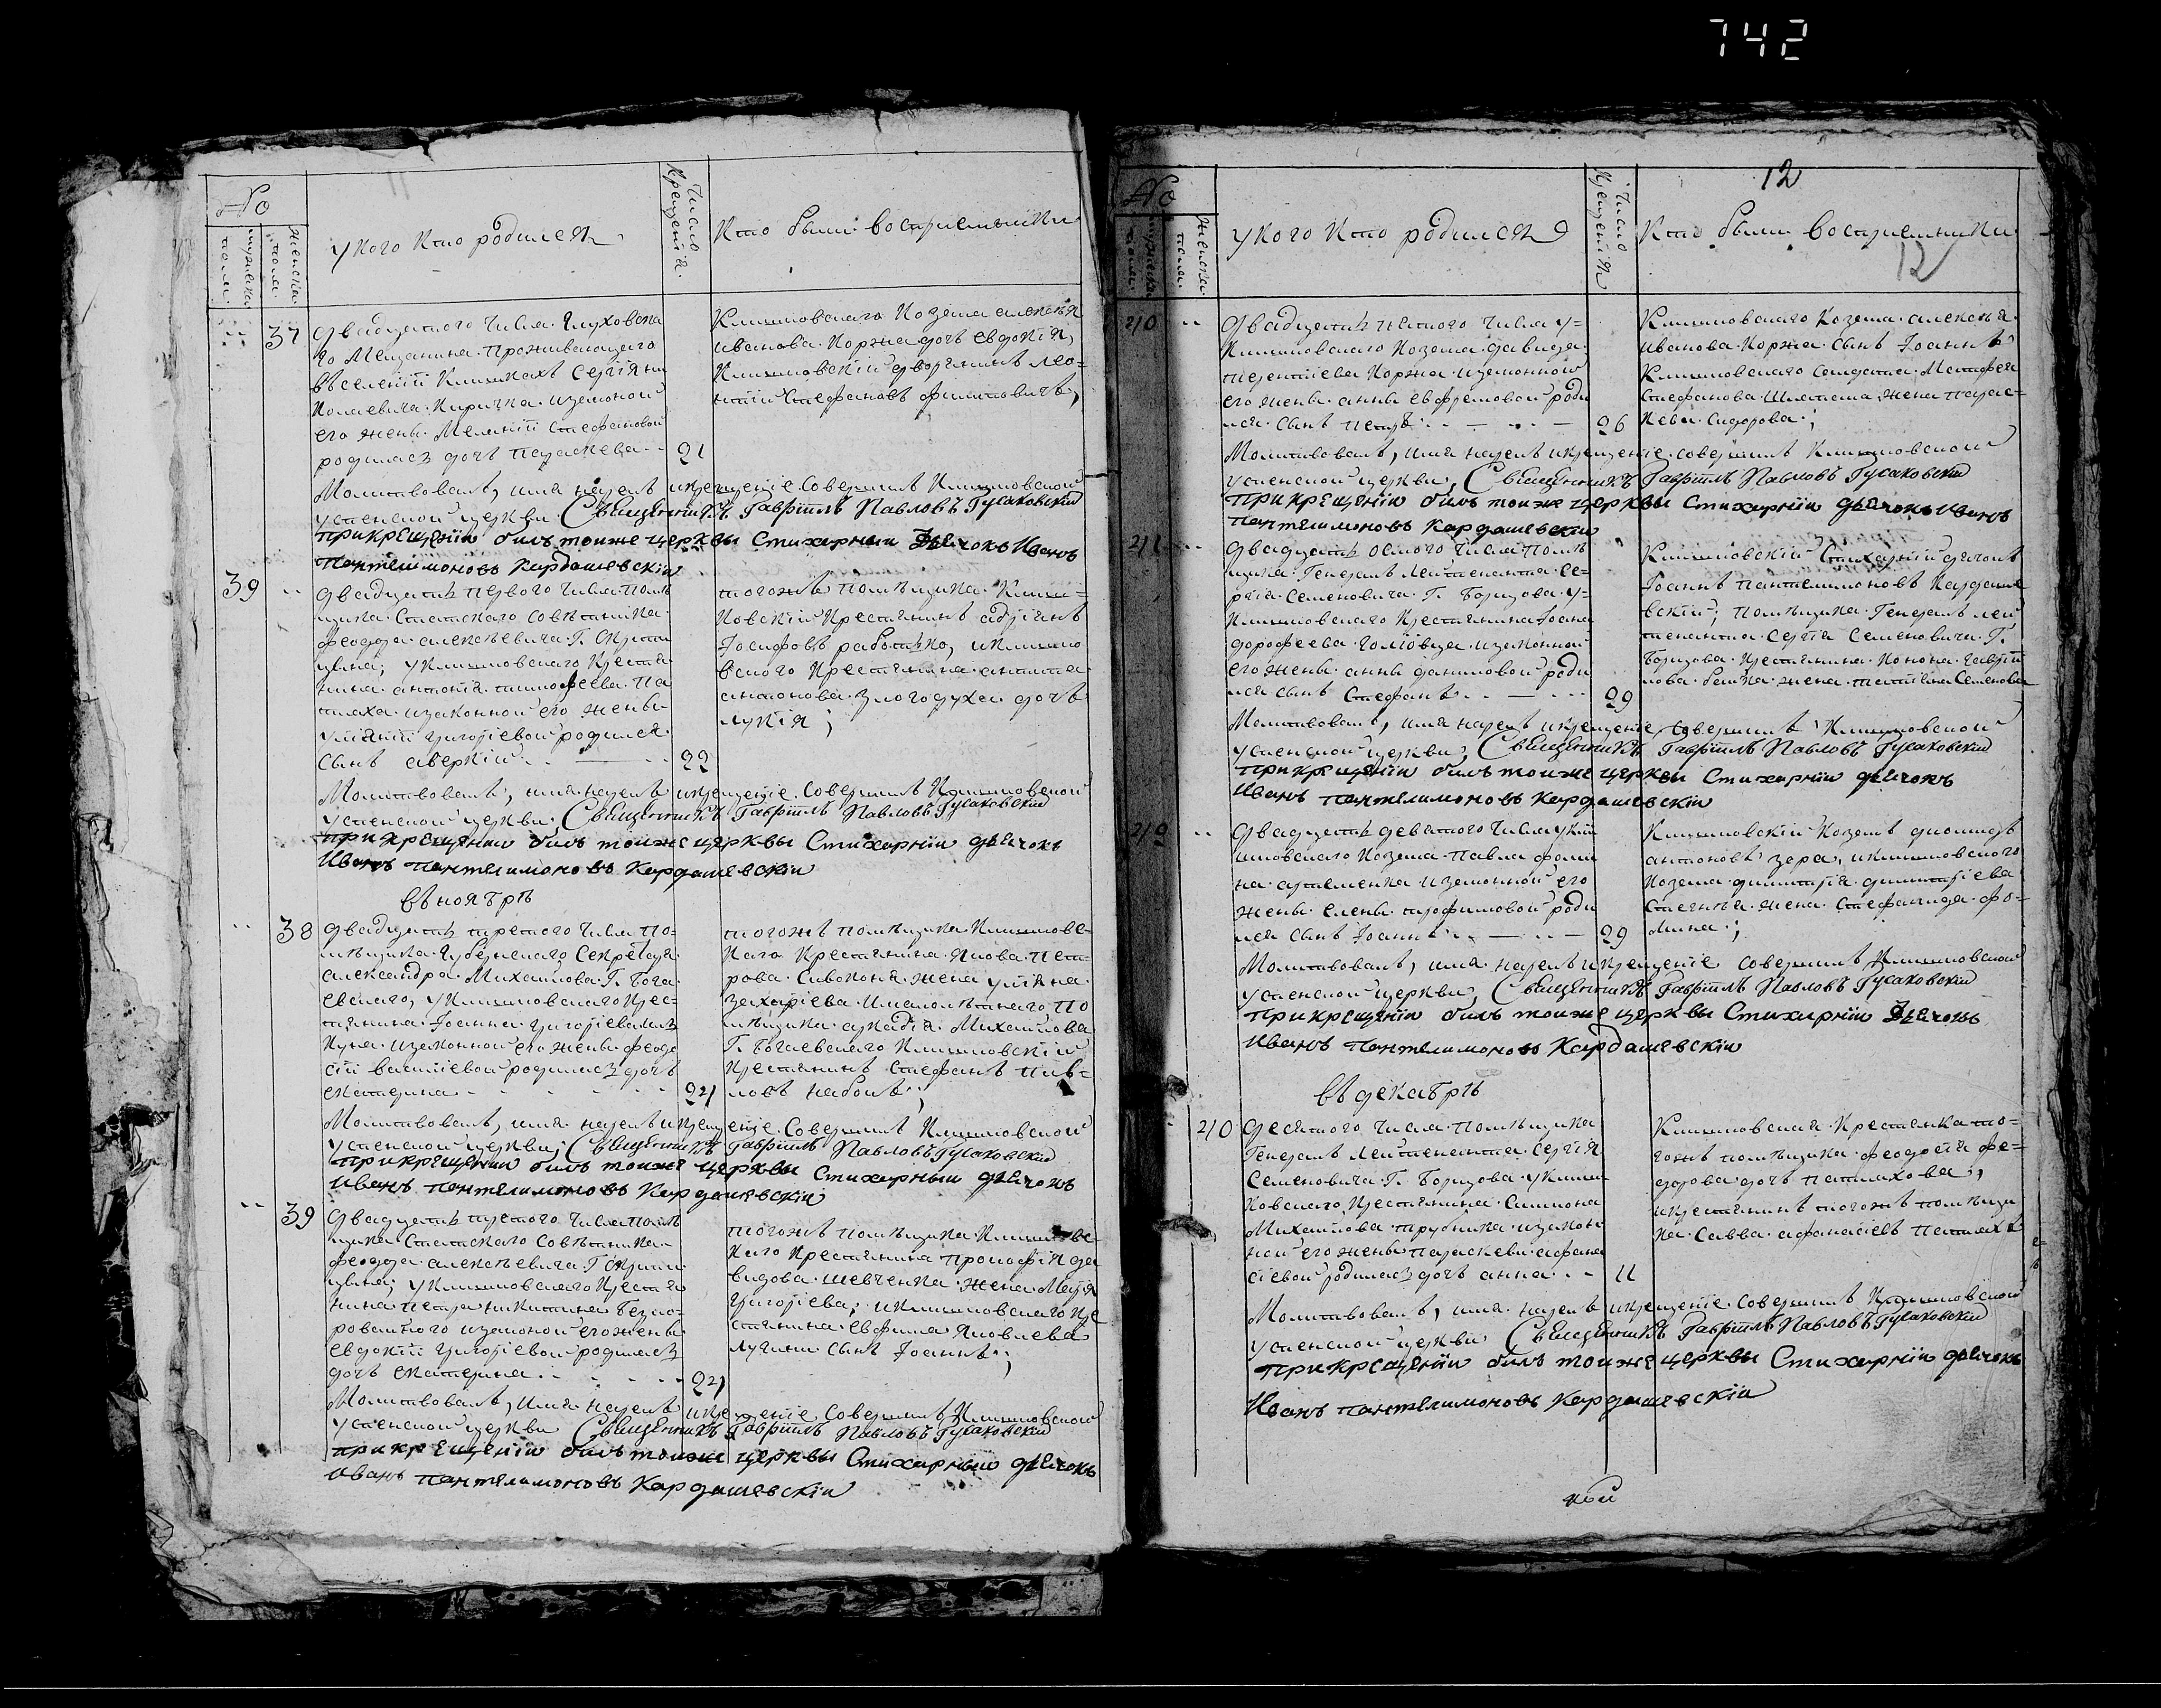 742
No
мужеска полу.
женска полу.
У кого Кто родился
Число Крещенія.
Кто были восприемники
37
Двадцатого числа Глуховска
го Мещанина Проживающего
въ селеніи Климкахъ Сергія Ни
колаевича Киричка изаконой
его жены Меланіи Стефановой
родилась дочь Параскева
21
Климовскаго Козака алексѣя
иванова Коржа дочь Евдокія,
Климовскій дворянинъ Лео-
нтій Стефановъ филиповичъ,
Молитвовалъ, имя нарелъ икрещеніе Совершилъ Климовской
успенской церкви Священникъ Гавріилъ Павловъ Гусаковскій
При крещеніи былъ тоиже церквы Стихарный Дьячокъ Иванъ
Пантелимоновъ Кардашевскій
39
Двадцать первого числа Помѣ
щика Статскаго Совѣтника
феодора алексѣевича Г. Скоропа
цкаго; у Климовскаго Крестя
нина антонія тимофеева Па
талаха изаконной его жены
уліяніи григоріевой родился
сынъ аверкій
22
тогожъ помѣщика Клим-
ковскій Крестянинъ адріянъ
Іосифовъ работько, и климо
вского Крестянина антипа
антонова Злогодуха дочь
лукія;
Молитвовалъ, имя нарелъ икрещеніе Совершилъ Климовской
Успенской церкви Священникъ Гавріилъ Павловъ Гусаковскій
При крещеніи былъ тоиже церквы Стихарніи дьячокъ
Иванъ Пантелимоновъ Кардашевскіи
въ ноябрѣ
38
Двадцать третого числа По-
мѣщика Губернскаго Секретаря
александра Михаилова Г. Бога
евскаго, у Климовскаго Крес-
тянина Іоанна григоріева
изаконной его жены феодо
сіи василіевой родилась дочь
екатерина
24
тогожъ помѣщика Климовс-
каго Крестянина Якова Пет-
рова Сивоконя жена уліяна
Захаріева Ималолѣтнаго По
мѣщика аркадія Михаилова
Г. Богаевскаго Климовскій
Крестянинъ Стефанъ Пав-
ловъ Набокъ;
Молитвовалъ, имя нарелъ икрещеніе Совершилъ Климовской
Успенской церкви; Священникъ Гавріилъ Павловъ Гусаковскій
При крещеніи былъ тоиже церквы Стихарный дьячокъ
Иванъ Пантелимоновъ Кардашевскіи
39
Двадцать третого числа Помѣ
щика Статскаго Совѣтника
феодора алексѣевича Г Скоропа
цкаго; у Климовскаго Крестя
нина петра никитина Безко-
роваиного изаконой его жены
Евдокіи григоріевой родилась
дочь екатерина
24
тогожъ помѣщика Климовс-
каго Крестянина Прокофія да
видова шевченка жена Марія
Григоріева; и климовскаго Кре
стянина Евфима Яковлева
Лугини сынъ Іоаннъ;
Молитвовалъ, имя нарелъ икрещеніе Совершилъ Климовской
Успенской церкви Священникъ Гавріилъ Павловъ Гусаковскій
При крещеніи былъ тоиже церквы Стихарный дьячокъ
Иванъ Пантелимоновъ Кардашевскіи
12
12
No
мужеска полу.
женска полу.
У кого Кто родился
Число Крещенія
Кто были восприемники
40
Двадцать пятого числа у
Климовскаго Козака давида
терентіева Коржа изаконной
его жены анны евфремовой роди
лся сынъ петръ
26
Климовскаго Козака алексѣя
иванова Коржа сынъ Іоаннъ
Климовскаго Солдата Матфея
Стефанова жена парас-
кева Сидорова;
Молитвовалъ, имя нарелъ икрещеніе совершилъ Климовской
успенской церкви, Священникъ Гавріилъ Павловъ Гусаковскій
При крещеніи былъ тоиже церквы Стихарніи дьячокъ Иванъ
Пантелимоновъ Кардашевскіи
41
Двадцать осмого числа Помѣ
щика Генералъ Лейтенанта Се-
ргія Семеновича Г. Борцова у
Климовскаго Крестянина Іоана
дорофеева изаконной
его жены анны даниловой роди
лся сынъ Стефанъ
29
Климовскій Стихарній дьячокъ
Іоаннъ пантелимоновъ Кардаше
вскій; помѣщика Генералъ лей
тенанта Сергія Семеновича Г.
Борцова Крестянина Конона Гаврїи
лова жена татіяна Семенова
Молитвовалъ, имя нарелъ икрещеніе, совершилъ Климовской
Успенской церкви, Священникъ Гавріилъ Павловъ Гусаковскій
При крещеніи былъ тоиже церквы Стихарніи дьячокъ
Иванъ Пантелимоновъ Кардашевскіи
42
Двадцать девятого числа у Кли
мовскаго Козака Павла фоми
на артеменка изаконной его
жены елены трофимовой роди
лся сынъ Іоаннъ
29
Климовскій Козакъ диомидъ
антоновъ зера, и климовского
Козака димитрія димитріева
жена Стефанида фо-
мина;
Молитвовалъ, имя нарелъ икрещеніе совершилъ Климовской
успенской церкви, Священникъ Гавріилъ Павловъ Гусаковскій
При крещеніи былъ тоиже церквы Стихарніи Дьячокъ
Иванъ Пантелимоновъ Кардашевскіи
въ декабрѣ
40
Десятого числа Помѣщика
Генералъ Лейтенанта Сергія
Семеновича Г. Борцова у Клим
ковскаго Крестянина Симиона
Михаилова трубника изакон
ной его жены параскевы афана
сіевой родилась дочь анна
11
Климовская Крестянка то-
гожъ помѣщика феодосія фе-
дорова дочь паталахова;
и крестянинъ тогожъ помѣщи
ка Савва афанасіевъ Паталаха
Молитвовалъ, имя нарелъ икрещеніе совершилъ Климовской
успенской церкви Священникъ Гавріилъ Павловъ Гусаковскій
При крещеніи былъ тоиже церквы Стихарніи дьячокъ
Иванъ Пантелимоновъ Кардашевскіи